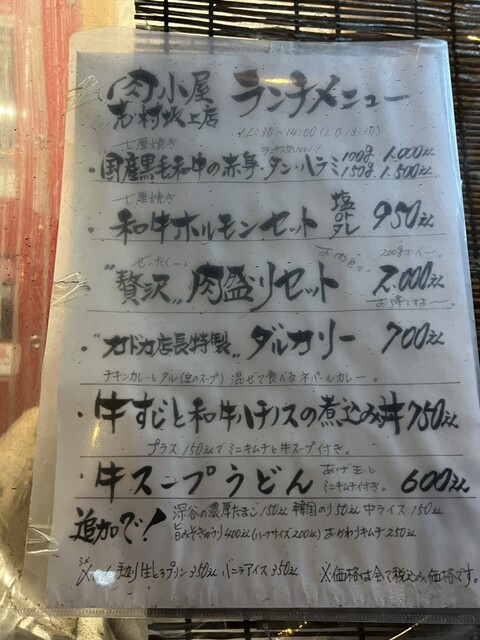 肉小屋
志村坂上店
ランチメニュー
12:30~14:00(LO 13:30)
七厘焼き
・国産黒毛和牛の赤身・タン・ハラミ 100g 1,000えん
150g 1,500えん
七厘焼き
・和牛ホルモンセット 塩 or タレ 950えん
ぜいたく〜。
200gオーバー。
・"贅沢"肉盛りセット 2,000えん
お得ですよ〜。
・"カドカ店長特製" ダルカリー 700えん
チキンカレーとダル(豆のスープ) 混ぜて食べるネパールカレー。
・牛すじと和牛ハチノスの煮込み丼 750えん
プラス150えんでミニキムチと牛スープ付き。
・牛スープうどん 600えん
あげ玉と
ミニキムチ付き。
追加で!
深谷の濃厚たまご 150えん 韓国のり 50えん 中ライス 150えん
旨みそきゅうり 400えん(ハーフサイズ200えん) おかわりキムチ 250えん
手造り生しろプリン 350えん バニラアイス 350えん
※価格は全て税込み価格です。